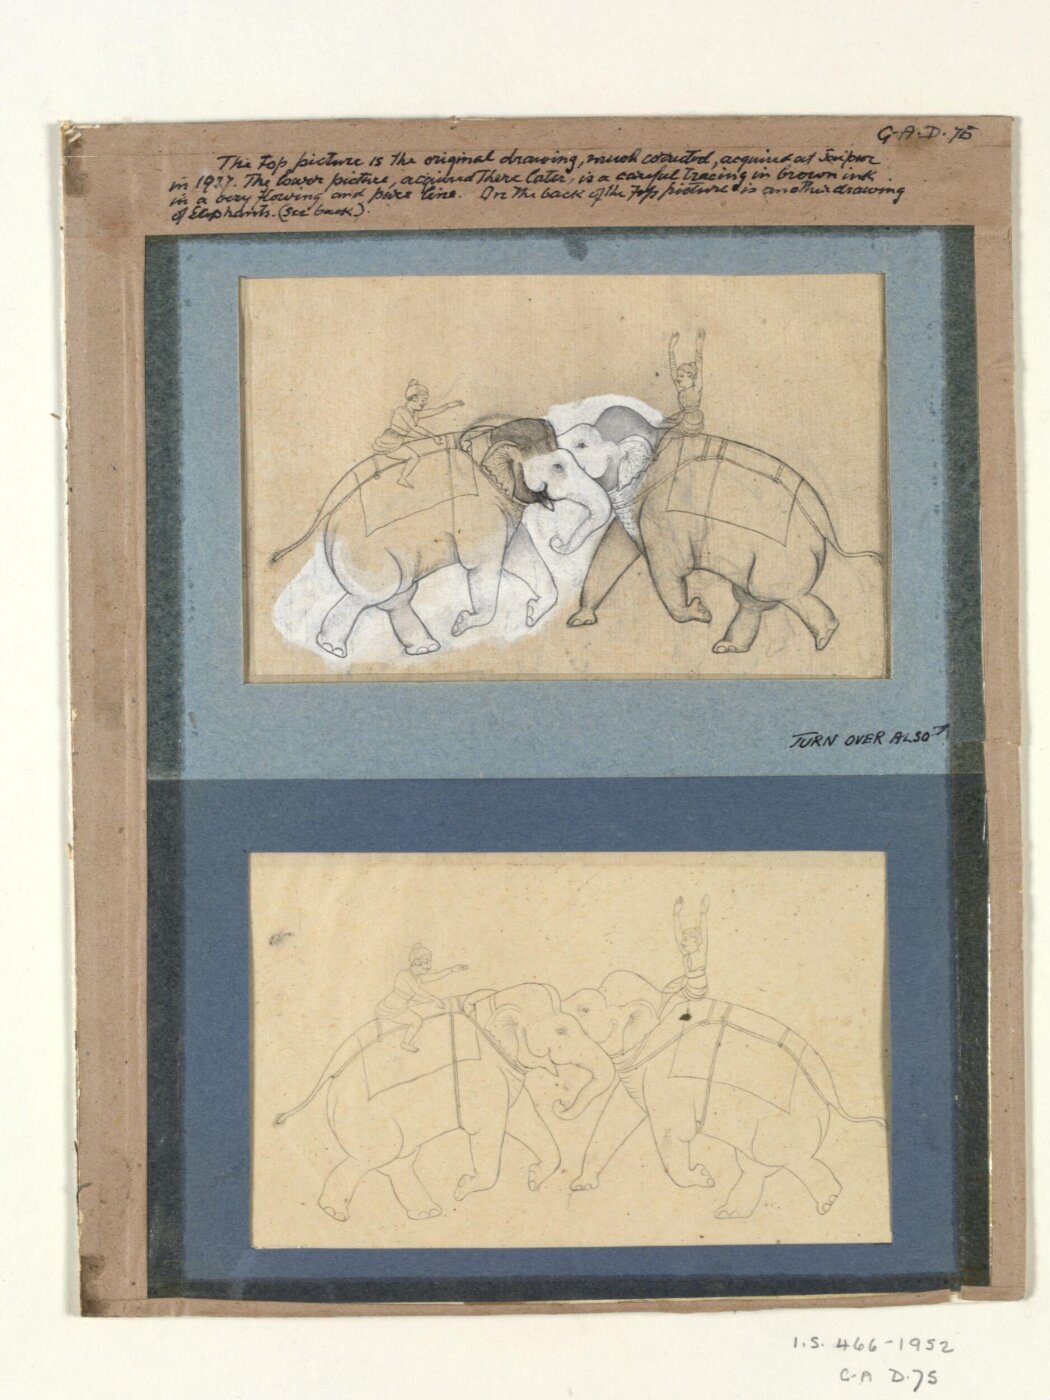 G-A-D-75
The top picture is the original drawing, much corrected, acquired at Jaipur
in 1937. The lower picture, acquired there later, is a careful tracing in brown ink
in a very flowing and pure line. On the back of the top picture is another drawing
of Elephants. (see back).
TURN OVER ALSO
I.S. 466-1952
G-A D.75